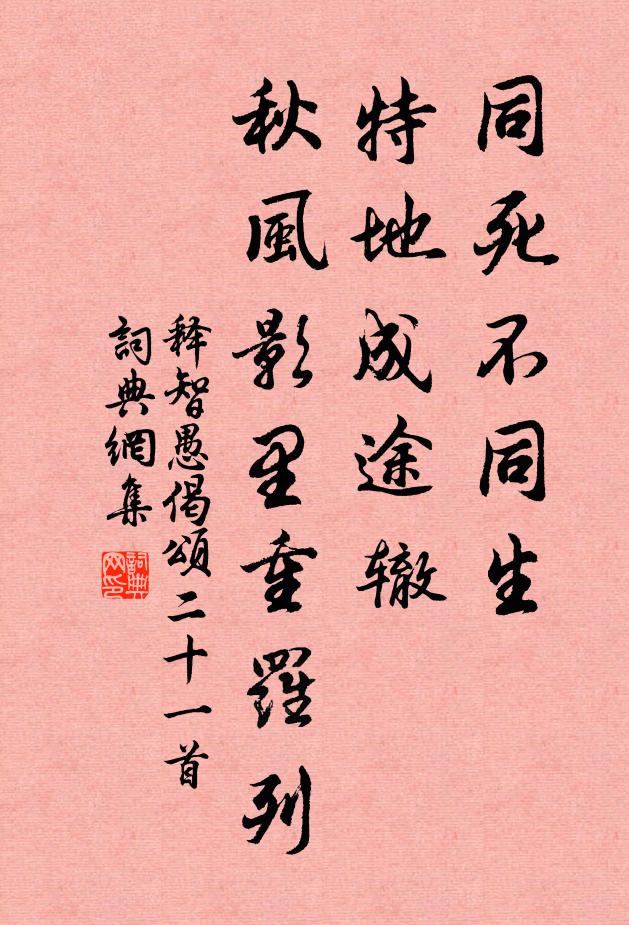 同死不同生
特地成途辙
秋風影里重羅列
释智愚偈頌二十一首
詞典網集
詞典網印